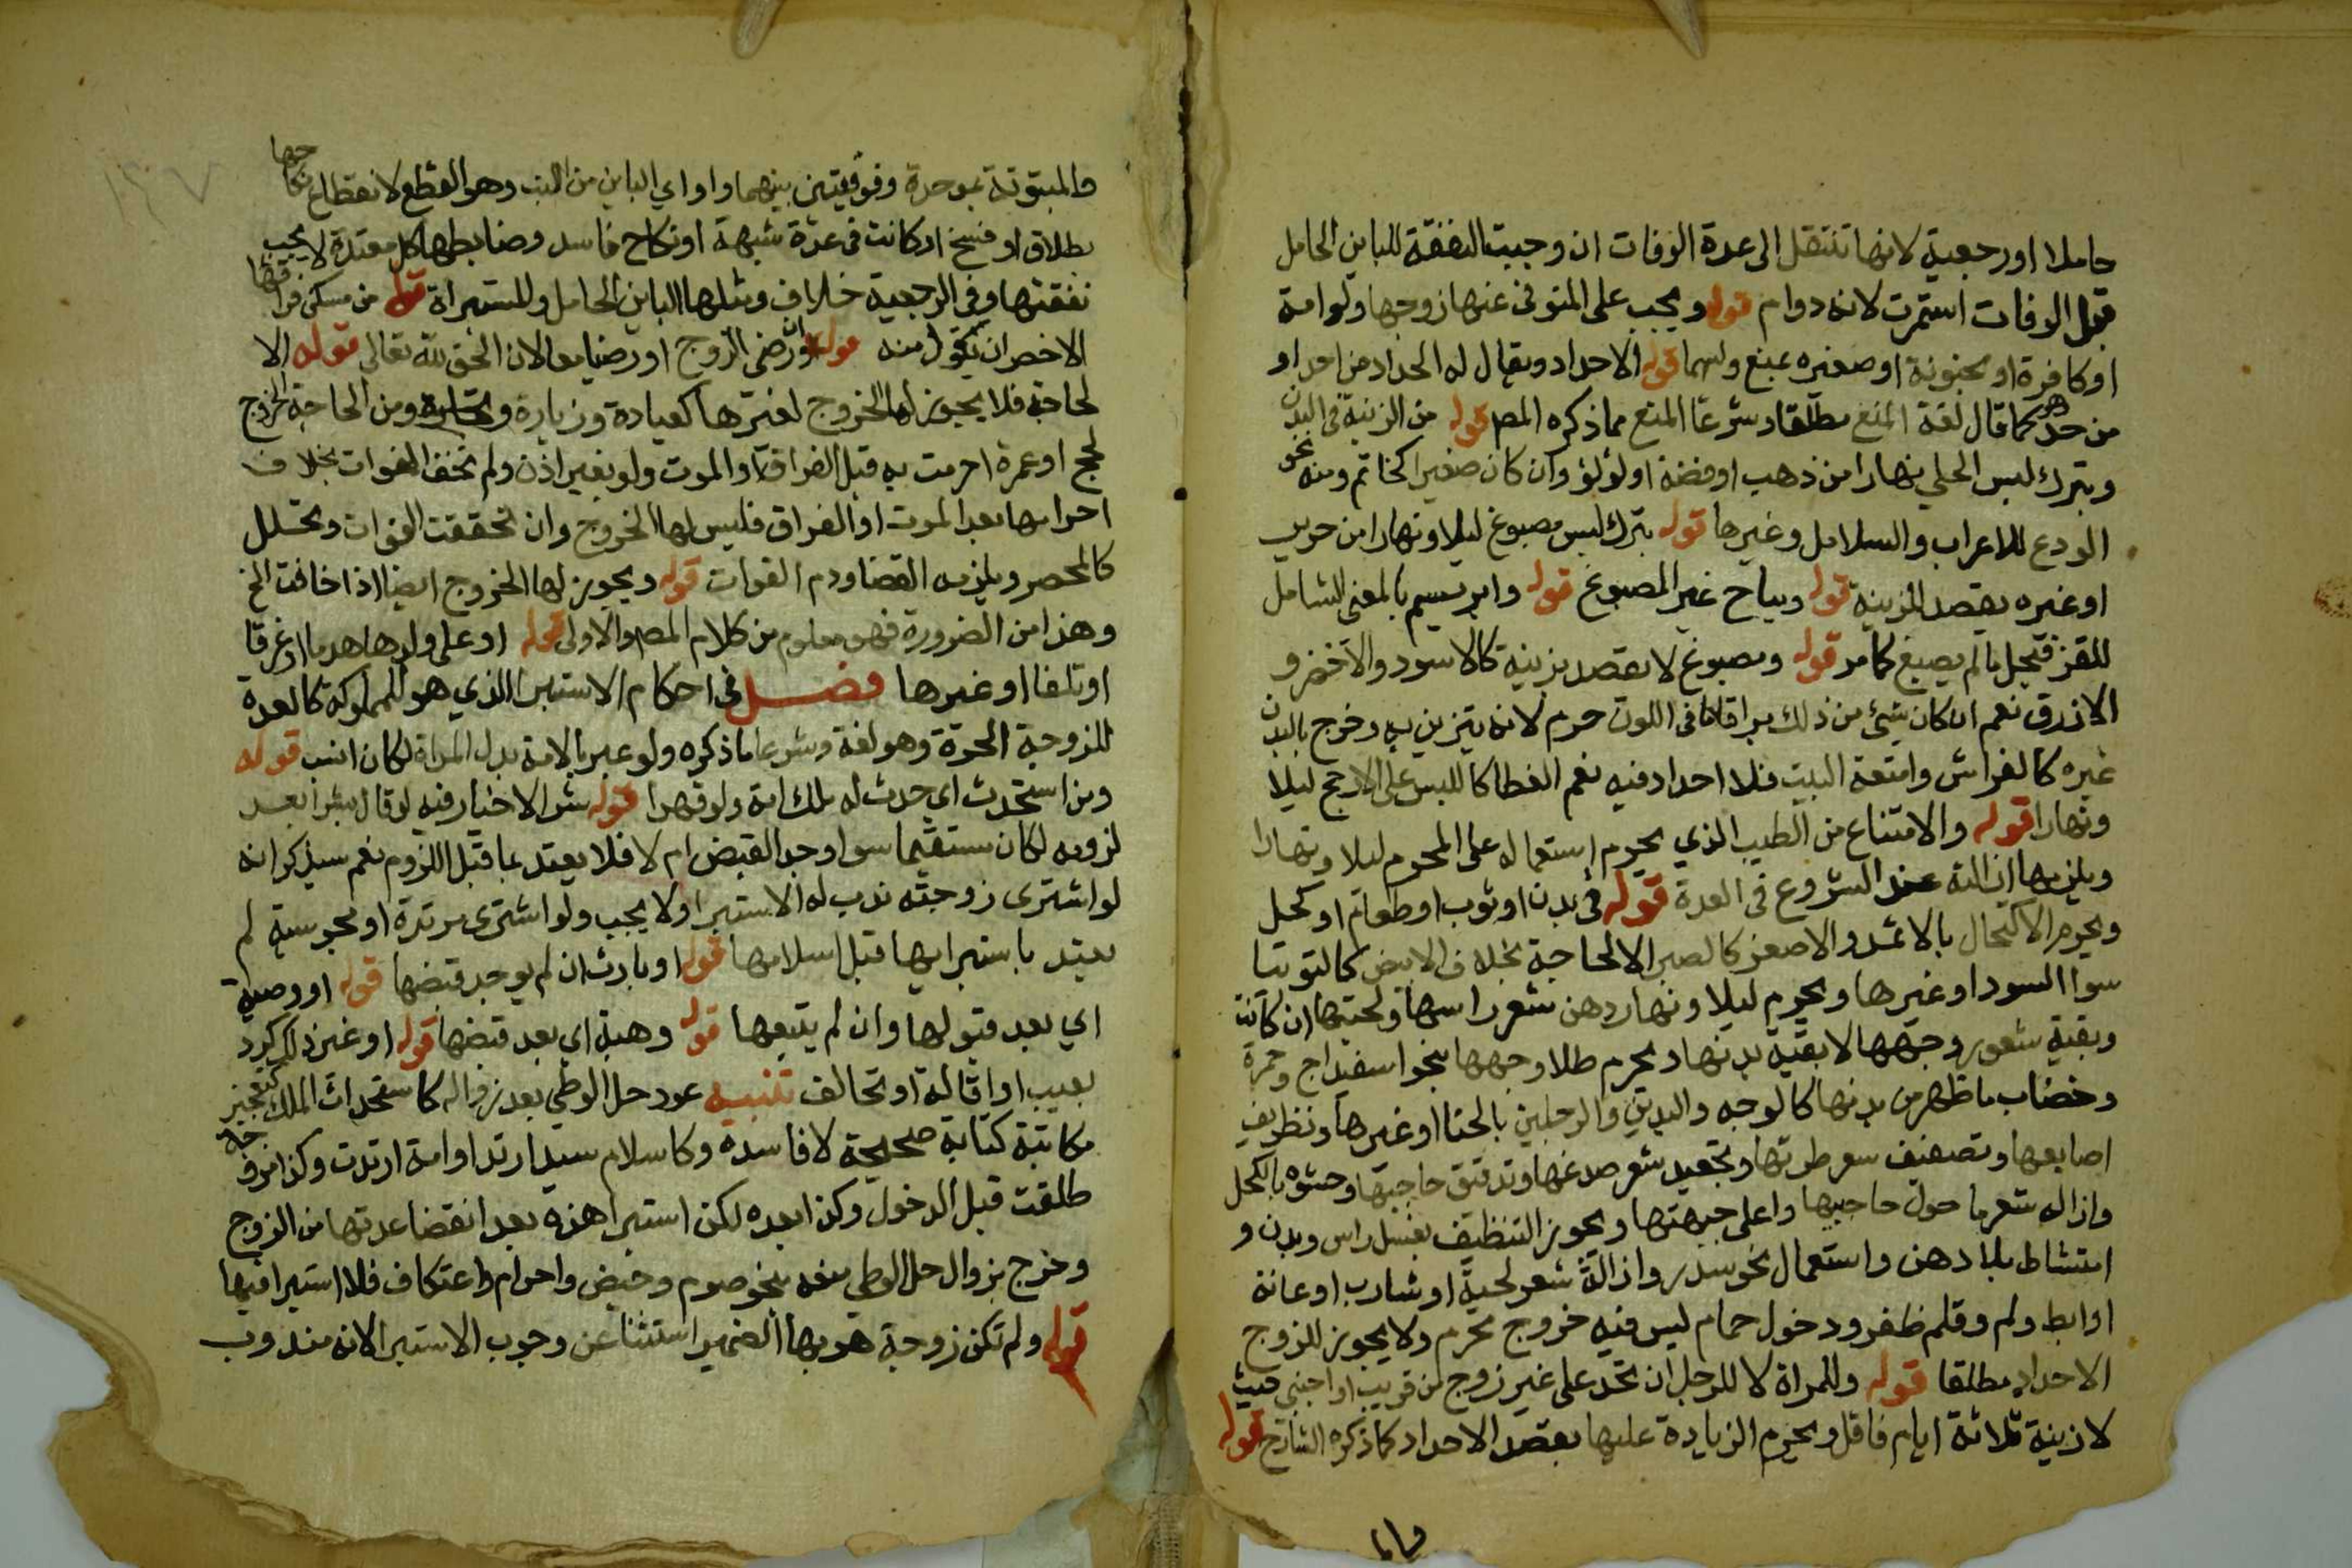 حاملا او رجعية لانها تنتقل الى عدة الوفات ان وجبت النفقة للباين الحامل
قبل الوفات استمرت لانه دوام قوله ويجب على المتوفى عنها زوجها ولو امة
او كافرة او مجنونة او صغيره بمنع وليهما قوله الاحداد ويقال له الحداد من احد او
من حد وهو كما قال لغة المنع مطلقا وشرعا المنع مما ذكره المص قوله من الزينة في البدن
ويترك لبس الحلي نهارا من ذهب او فضة او لؤلؤ وان كان صغيرا كخاتم ومنه نحو
الودع للاعراب والسلاسل وغيرها قوله بترك لبس مصبوغ ليلا ونهارا من حرير
او غيره بقصد الزينة قوله ويباح غير المصبوغ قوله وابريسم بالمعنى الشامل
للقز فيحل ما لم يصبغ كما مر قوله ومصبوغ لا يقصد بزينة كالاسود والاخضر و
الازرق نعم ان كان شيئ من ذلك براقا صافى اللون حرم لانه يتزين به وخرج بالبدن
غيره كالفراش وامتعة البيت فلا احداد فيه نعم الغطا كاللبس على الارجح ليلا
ونهارا قوله والامتناع من الطيب الذي يحرم استعماله على المحرم ليلا ونهارا
ويلزمها ازالته عند الشروع في العدة قوله في بدن او ثوب او طعام او كحل
ويحرم الاكتحال بالاثمد والاصفر كالصبر الا لحاجة بخلاف الابيض كالتوتيا
سوا السودا وغيرها ويحرم ليلا ونهارا دهن شعر راسها ولحيتها ان كانت
وبقية شعور وجهها لا بقية بدنها ويحرم طلا وجهها بنحو اسفيداج وحمرة
وخضاب ما ظهر من بدنها كالوجه واليدين والرجلين بالحنا او غيرها وتطريف
اصابعها وتصفيف شعر طرتها وتجعيد شعر صدغها وتدقيق حاجبها وحشوه بالكحل
وازالة شعر ما حول حاجبيها واعلى جبهتها ويجوز التنظيف بغسل راس وبدن و
امتشاط بلا دهن واستعمال نحو سدر وازالة شعر لحية او شارب او عانة
او ابط ولم وقلم ظفر ودخول حمام ليس فيه خروج محرم ولا يجوز للزوج
الاحداد مطلقا قوله وللمراة لا للرجل ان تحد على غير زوج من قريب او اجنبي حيث
لا زينة ثلاثة ايام فاقل ويحرم الزيادة عليها بقصد الاحداد كما ذكره الشارح قوله
والمبتوتة بموحدة وفوقيتين بينهما واو اي الباين من البت وهو القطع لانقطاع نكاحها
بطلاق او فسخ او كانت في عدة شبهة او نكاح فاسد وضابطها كل معتدة لا يجب
نفقتها وفي الرجعية خلاف ومثلها الباين الحامل والمستبراة قوله من مسكن فراقها
الاخصر ان يقول منه قوله وان رضى الزوج او رضيا معا لان الحق لله تعالى قوله الا
لحاجة فلا يجوز لها الخروج لغيرها كعيادة وزيارة وتجارة ومن الحاجة الخروج
لحج او عمرة احرمت به قبل الفراق او الموت ولو بغير اذن ولم تخف الفوات بخلاف
احرامها بعد الموت او الفراق فليس لها الخروج وان تحققت الفوات وتتحلل
كالمحصر ويلزمه القضا ودم الفوات قوله ويجوز لها الخروج ايضا اذا خافت الخ
وهذا من الضرورة فهو معلوم من كلام المص والاولى قوله او على ولدها هدما او غرقا
او تلفا او غيرها فصل في احكام الاستبرا الذي هو للمملوكة كالعدة
للزوجة الحرة وهو لغة وشرعا ما ذكره ولو عبر بالامة بدل المراة لكان انسب قوله
ومن استحدث اي حدث له ملك امة ولو قهرا قوله بشرا لا خيار فيه لو قال بشرا بعد
لزومه لكان مستقيما سوا وجد القبض ام لا فلا يعتد بما قبل اللزوم نعم سيذكر انه
لو اشترى زوجته ندب له الاستبرا ولا يجب ولو اشترى مرتدة او مجوسية لم
يعتد باستبرايها قبل اسلامها قوله او بارث ان لم يوجد قبضها قوله او وصية
اي بعد قبولها وان لم يقبضها قوله وهبة اي بعد قبضها قوله او غير ذلك كرد
بعيب او اقالة او تحالف تنبيه عود حل الوطي بعد زواله كاستحداث الملك كتعجيز
مكاتبة كتابة صحيحة لا فاسده وكاسلام سيد ارتد او امة ارتدت وكذا مزوجة
طلقت قبل الدخول وكذا بعده لكن استبرا هذه بعد انقضا عدتها من الزوج
وخرج بزوال حل الوطي منعه بنحو صوم وحيض واحرام واعتكاف فلا استبرا فيها
قوله ولم تكن زوجة هو بها الضمير استثنا عن وجوب الاستبرا لانه مندوب